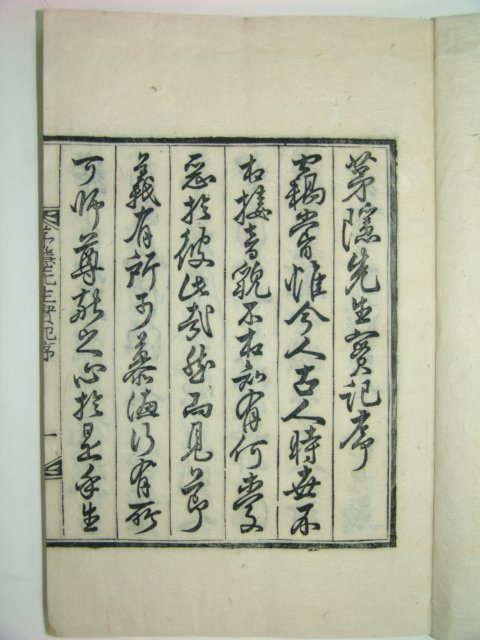 茅隱先生實記序
竊嘗惟今人古人時世不
相接音貌不相知有何愛
惡於彼此哉然而見節
義有所可慕德行有所
可師尊敬之心於是乎生
茅隱先生實記序
一